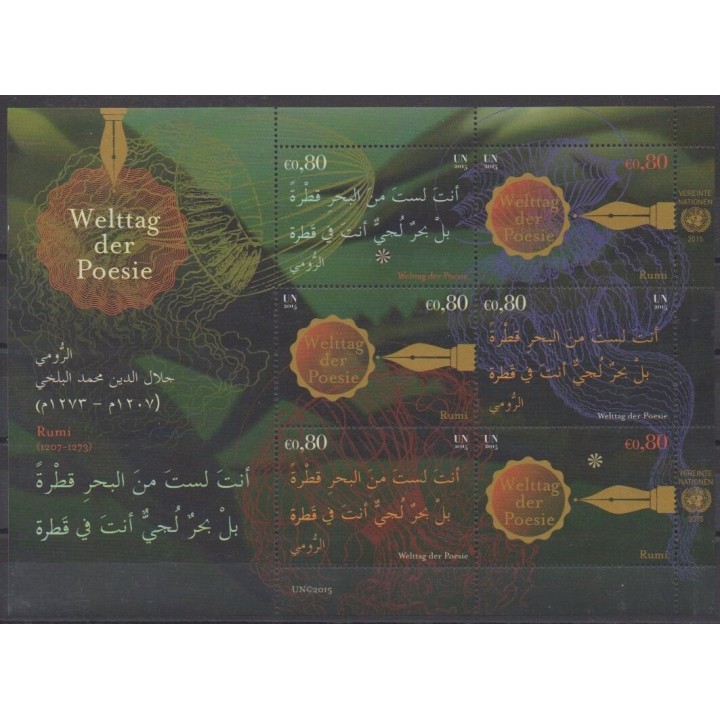 Welttag
der
Poesie
الرُّومي
جلال الدين محمد البلخي
(١٢٠٧م – ١٢٧٣م)
Rumi
(1207-1273)
أنتَ لستَ منَ البحرِ قطْرةً
بلْ بحرٌ لُجيٌّ أنتَ في قَطرة
€0,80
UN
2015
أنتَ لستَ منَ البحرِ قطْرةً
بلْ بحرٌ لُجيٌّ أنتَ في قطرة
الرُّومي
Welttag der Poesie
UN
2015
€0,80
Welttag
der
Poesie
Rumi
VEREINTE
NATIONEN
2015
UN
2015
€0,80
Welttag
der
Poesie
Rumi
€0,80
UN
2015
أنتَ لستَ منَ البحرِ قطْرةً
بلْ بحرٌ لُجيٌّ أنتَ في قطرة
الرُّومي
Welttag der Poesie
€0,80
UN
2015
أنتَ لستَ منَ البحرِ قطْرةً
بلْ بحرٌ لُجيٌّ أنتَ في قطرة
الرُّومي
Welttag der Poesie
UN
2015
€0,80
Welttag
der
Poesie
Rumi
VEREINTE
NATIONEN
2015
UN©2015